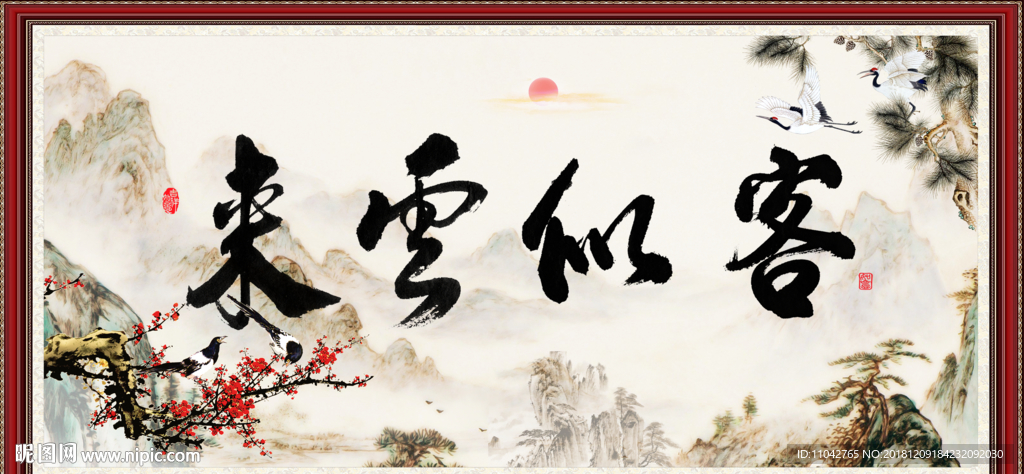 客似雲来
昵图网 www.nipic.com
ID:11042765 NO:20181209184232092030